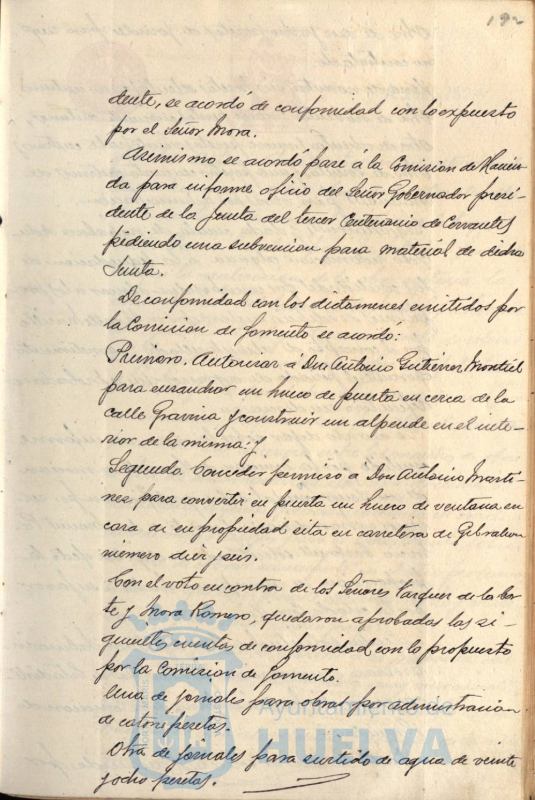 192
dente, se acordó de conformidad con lo expuesto
por el Señor Mora.
Asimismo se acordó pase á la Comision de Hacien-
da para informe oficio del Señor Gobernador presi-
dente de la Junta del tercer Centenario de Cervantes
pidiendo una subvencion para material de dicha
Junta.
De conformidad con los dictamenes emitidos por
la Comision de Fomento se acordó:
Primero. Autorizar á Don Antonio Gutiérrez Montiel
para ensanchar un hueco de puerta en cerca de la
calle Gravina y construir un alpende en el inte-
rior de la misma; y
Segundo. Conceder permiso á Don Antonio Martí-
nez para convertir en puerta un hueco de ventana en
casa de su propiedad sita en carretera de Gibraleon
número diez y seis.
Con el voto en contra de los Señores Vazquez de la Cor-
te y Mora Romero, quedaron aprobadas las si-
guientes cuentas de conformidad con lo propuesto
por la Comision de Fomento.
Una de jornales para obras por administracion
de catorce pesetas.
Otra de jornales para surtido de agua de veinte
y ocho pesetas.
Ayuntamiento de
HUELVA